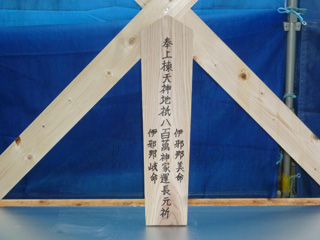 奉上棟天神地祇八百萬神家運長元祈
伊邪那美命
伊邪那岐命